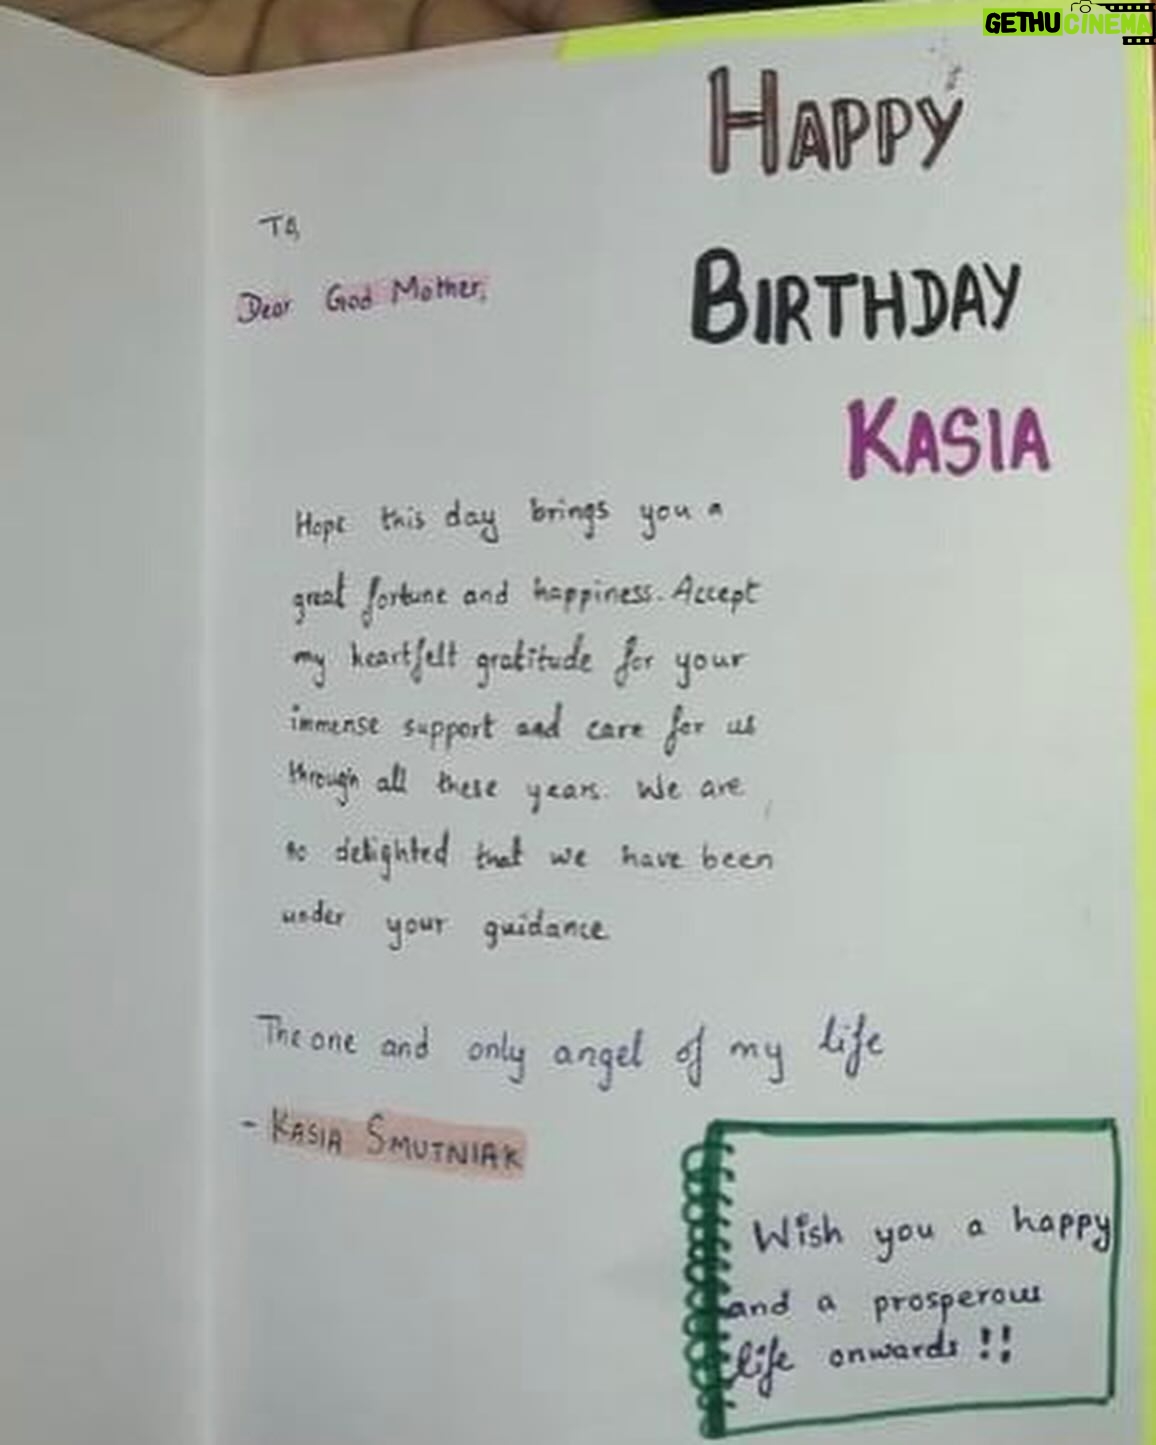 GETHUCINEMA
HAPPY
BIRTHDAY
KASIA
To,
Dear God Mother,
Hope this day brings you a
great fortune and happiness. Accept
my heartfelt gratitude for your
immense support and care for us
through all these years. We are
so delighted that we have been
under your guidance
The one and only angel of my life
- KASIA SMUTNIAK
Wish you a happy
and a prosperous
life onwards !!